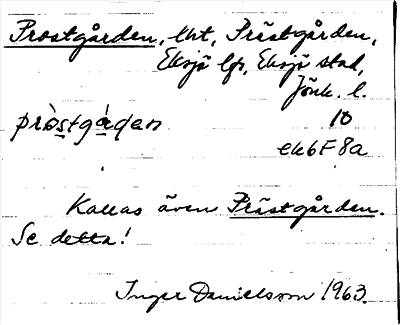 Prostgården, tht, Prästgården,
Eksjö lfs, Eksjö stad,
Jönk. l.
pròstgá̀ṛden 10
ek6F8a
Kallas även Prästgården.
Se detta!
Inger Danielsson 1963.